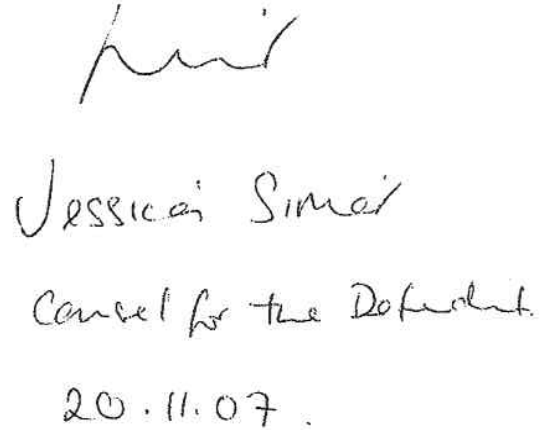 Jessica Simor
Counsel for the Defendant.
20.11.07.